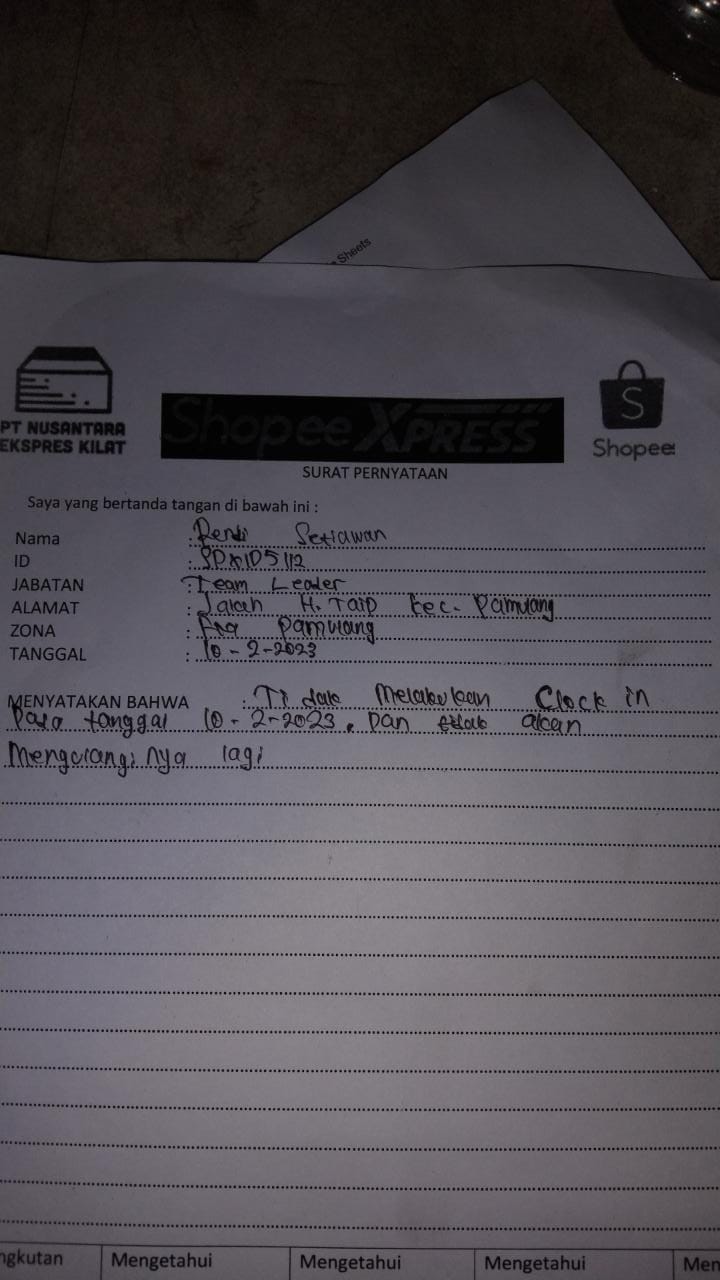 Sheets
PT NUSANTARA
EKSPRES KILAT
Shopee XPRESS
S
Shopee
SURAT PERNYATAAN
Saya yang bertanda tangan di bawah ini :
Nama : Rendi Setiawan
ID :
JABATAN : Team Leader
ALAMAT : Jalan H. Taip kec. Pamulang
ZONA : Pamulang
TANGGAL : 10-2-2023
MENYATAKAN BAHWA : Tidak Melakukan Clock in
Pada tanggal 10-2-2023. Dan tidak akan
Mengulangi nya lagi
ngkutan Mengetahui Mengetahui Mengetahui Men